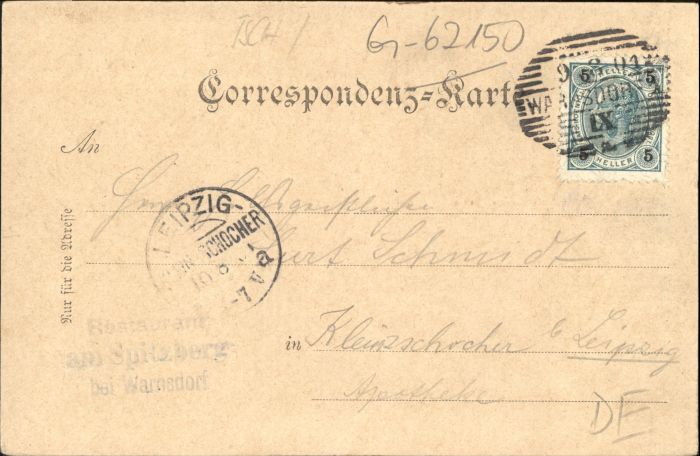 TSCH /
G-62150
Correspondenz-Karte
5 HELLER 5
WARNSDORF
IX
An
Herrn
Kurt Schmidt
LEIPZIG-
KLEINZSCHOCHER
10 8
-7 V
Nur für die Adresse
in Kleinzschocher b/ Leipzig
Apotheke
Restaurant
am Spitzberg
bei Warnsdorf
DE